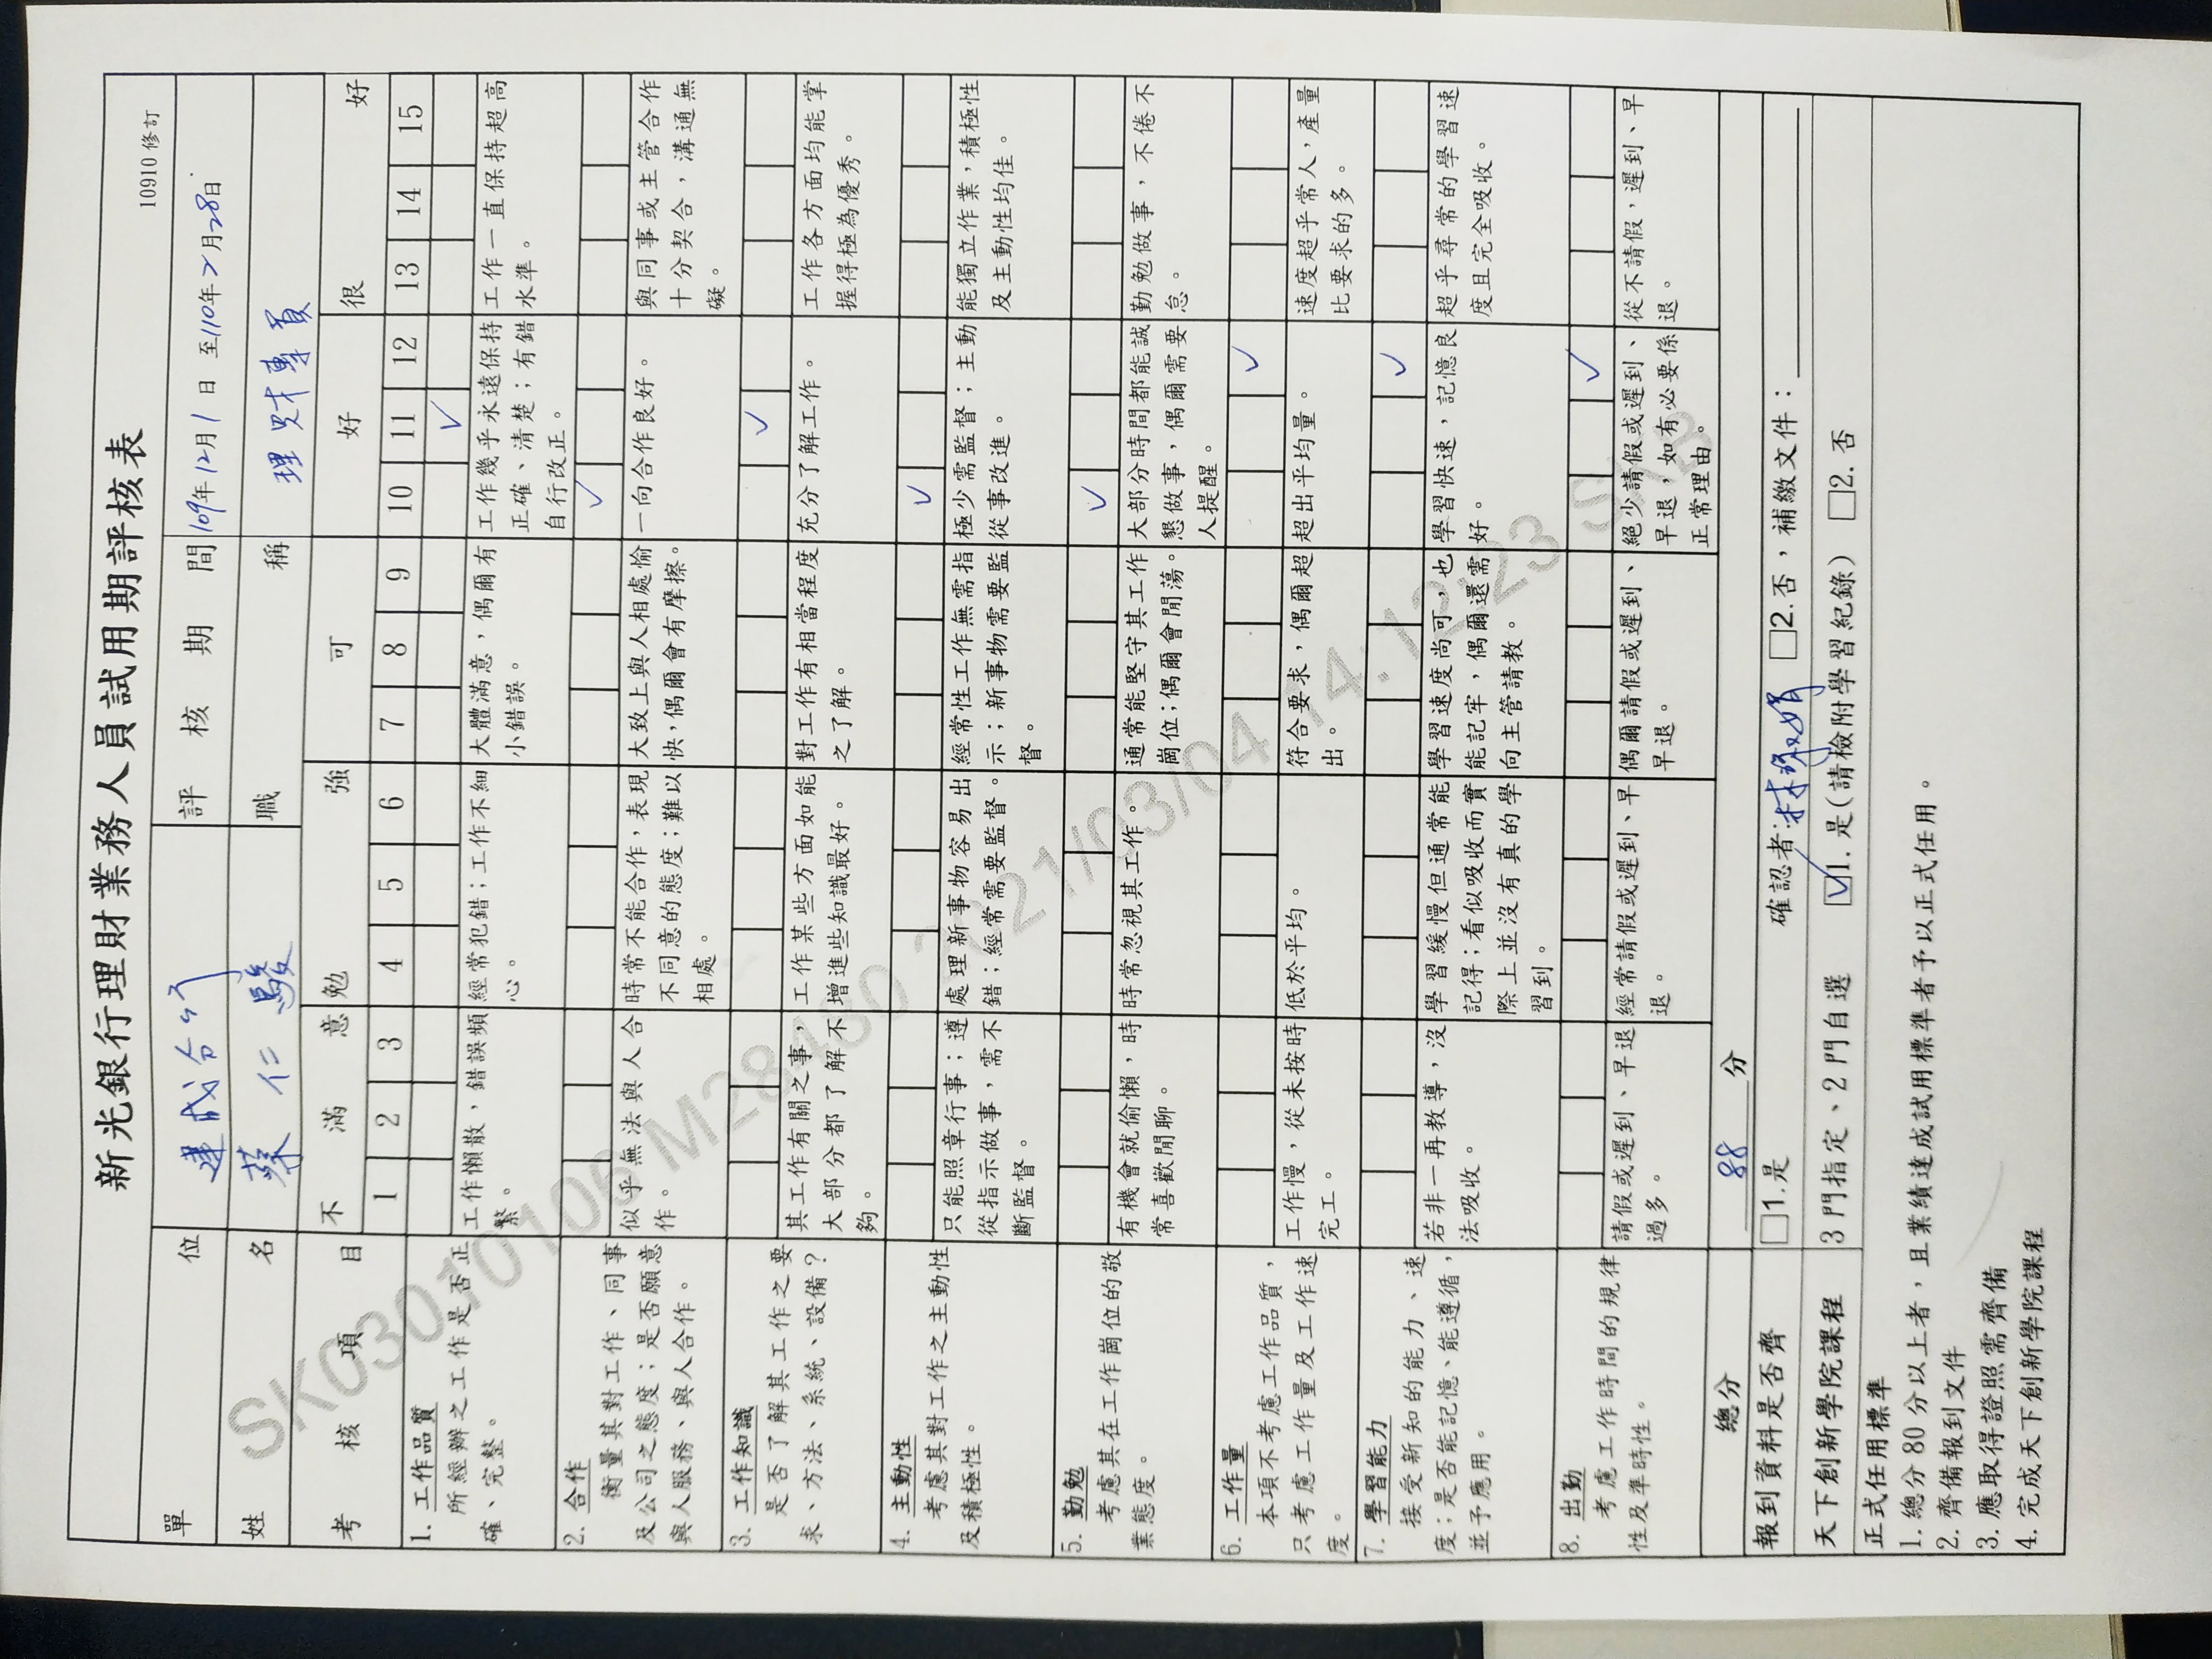 新光銀行理財業務人員試用期評核表
10910 修訂
單位 達成分行 評核期間 109年12月1日 至110年2月28日
姓名 蔡仁駿 職稱 理財專員
考核項目 不滿意 勉強 可 好 很好
1 2 3 4 5 6 7 8 9 10 11 12 13 14 15
1. 工作品質
所經辦之工作是否正
確、完整。
✓
工作懶散，錯誤頻
繁。
經常犯錯；工作不細
心。
大體滿意，偶爾有
小錯誤。
工作幾乎永遠保持
正確、清楚；有錯
自行改正。
工作一直保持超高
水準。
2. 合作
衡量其對工作、同事
及公司之態度；是否願意
與人服務、與人合作。
✓
似乎無法與人合
作。
時常不能合作，表現
不同意的態度；難以
相處。
大致上與人相處愉
快，偶爾會有摩擦。
一向合作良好。
與同事或主管合作
十分契合，溝通無
礙。
3. 工作知識
是否了解其工作之要
求、方法、系統、設備？
✓
其工作有關之事，
大部分都了解不
夠。
工作某些方面如能
增進些知識最好。
對工作有相當程度
之了解。
充分了解工作。
工作各方面均能掌
握得極為優秀。
4. 主動性
考慮其對工作之主動性
及積極性。
✓
只能照章行事；遵
從指示做事，需不
斷監督。
處理新事物容易出
錯；經常需要監督。
經常性工作無需指
示；新事物需要監
督。
極少需監督；主動
從事改進。
能獨立作業，積極性
及主動性均佳。
5. 勤勉
考慮其在工作崗位的敬
業態度。
✓
有機會就偷懶，時
常喜歡閒聊。
時常忽視其工作。
通常能堅守其工作
崗位；偶爾會閒蕩。
大部分時間都能誠
懇做事，偶爾需要
人提醒。
勤勉做事，不倦不
怠。
6. 工作量
本項不考慮工作品質，
只考慮工作量及工作速
度。
✓
工作慢，從未按時
完工。
低於平均。
符合要求，偶爾超
出。
超出平均量。
速度超乎常人，產量
比要求的多。
7. 學習能力
接受新知的能力、速
度；是否能記憶、能遵循，
並予應用。
✓
若非一再教導，沒
法吸收。
學習緩慢但通常能
記得；看似吸收而實
際上並沒有真的學
習到。
學習速度尚可，也
能記牢，偶爾還需
向主管請教。
學習快速，記憶良
好。
超乎尋常的學習速
度且完全吸收。
8. 出勤
考慮工作時間的規律
性及準時性。
✓
請假或遲到、早退
過多。
經常請假或遲到、早
退。
偶爾請假或遲到、
早退。
絕少請假或遲到、
早退，如有必要係
正常理由。
從不請假，遲到、早
退。
總分 88 分
報到資料是否齊 □1.是 確認者：林淑娟 □2.否，補繳文件：
天下創新學院課程 3門指定、2門自選 ☑1. 是(請檢附學習紀錄) □2. 否
正式任用標準
1. 總分 80 分以上者，且業績達成試用標準者予以正式任用。
2. 齊備報到文件
3. 應取得證照需齊備
4. 完成天下創新學院課程